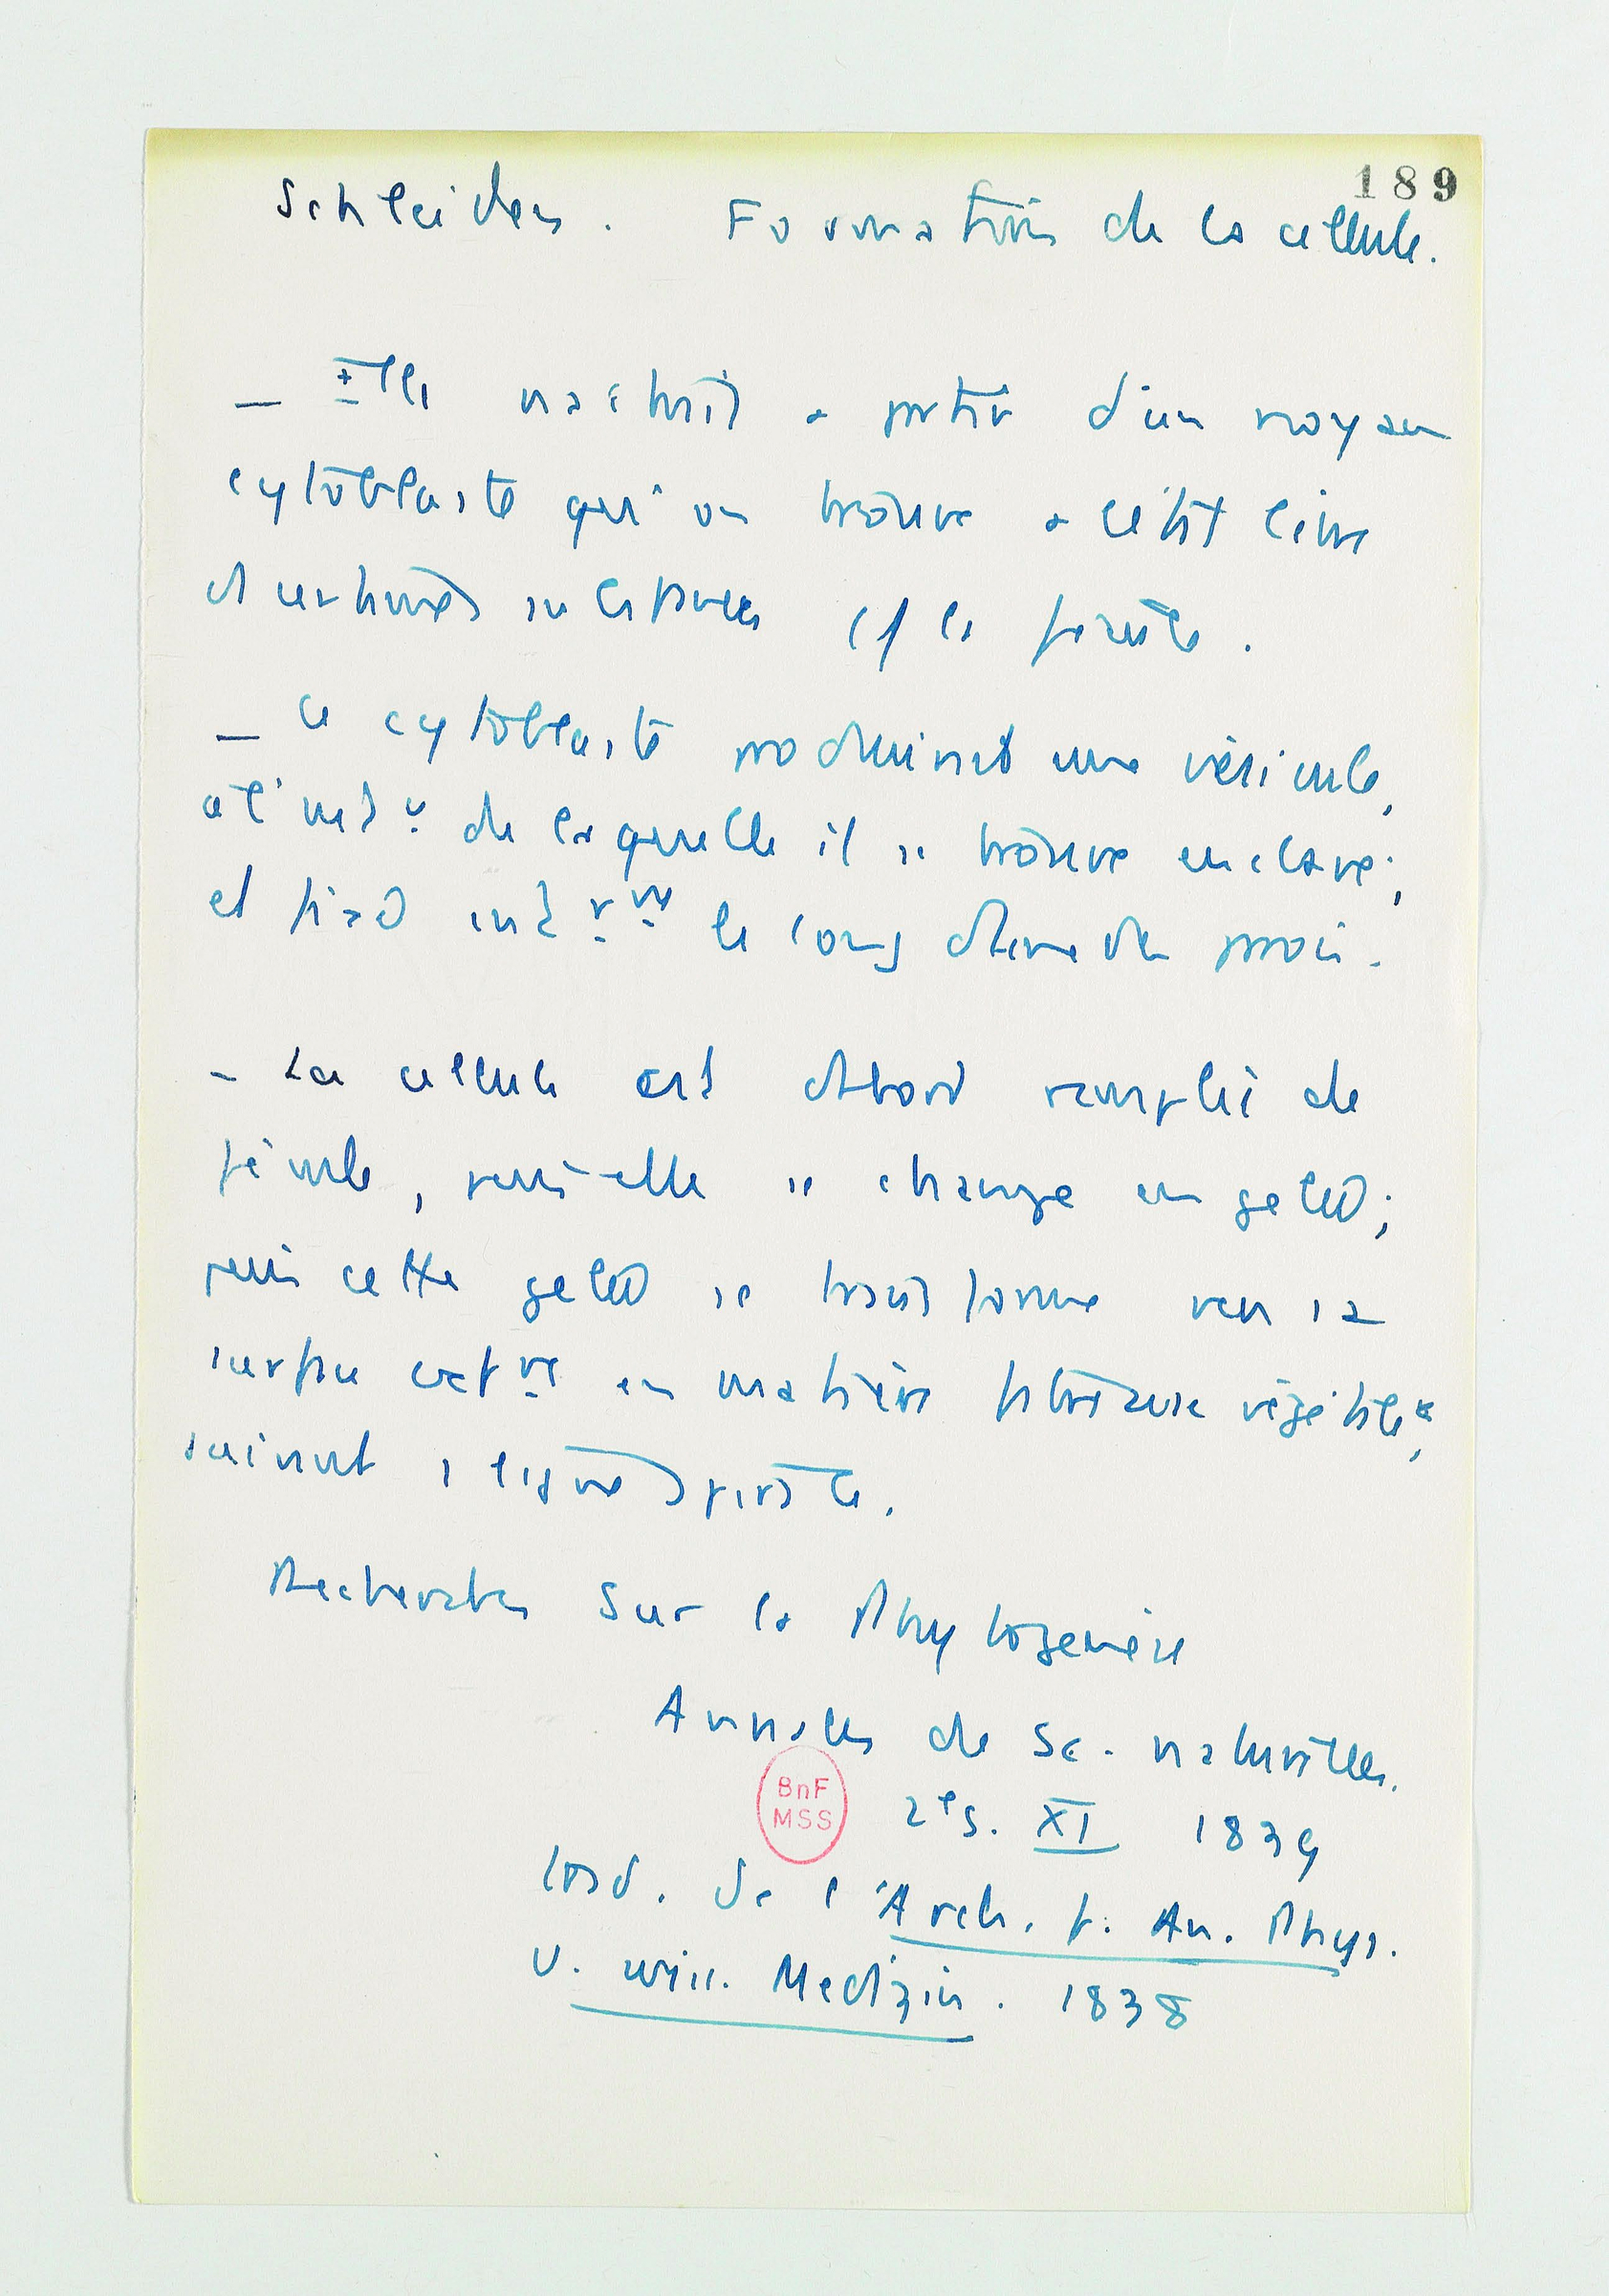 189
Schleiden. Formation de la cellule.
_ Elle naîtrait a partir d'un noyau
cytoblaste qu'on trouve a l'état libre
et certaines
_ Ce cytoblaste produirait une vésicule,
a l'int^r de laquelle il se trouve enclavé;
et fixé int^r^mt le long de
- La cellule est d'abord remplie de
fécule, puis elle se change en gelée;
puis cette gelée se transforme vers sa
surface en matière fibreuse végétale,
suivant 1 ligne spirale.
Recherches sur la Phytogenèse
Annales de Sc. naturelles.
2e s. XI 1839
trad. de l'Arch. f. An. Phys.
u. wiss. Medizin. 1838
BnF
MSS